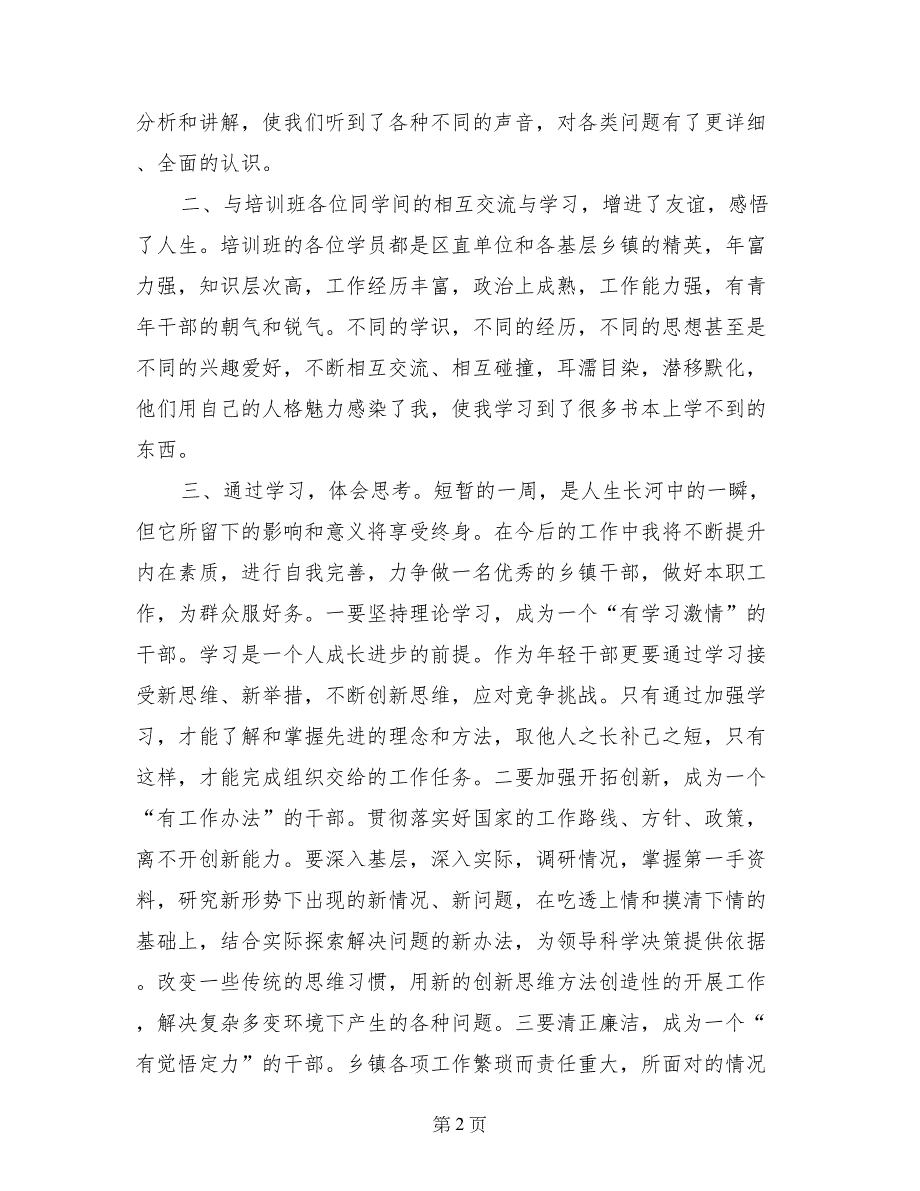 分析和讲解，使我们听到了各种不同的声音，对各类问题有了更详细
、全面的认识。
二、与培训班各位同学间的相互交流与学习，增进了友谊，感悟
了人生。培训班的各位学员都是区直单位和各基层乡镇的精英，年富
力强，知识层次高，工作经历丰富，政治上成熟，工作能力强，有青
年干部的朝气和锐气。不同的学识，不同的经历，不同的思想甚至是
不同的兴趣爱好，不断相互交流、相互碰撞，耳濡目染，潜移默化，
他们用自己的人格魅力感染了我，使我学习到了很多书本上学不到的
东西。
三、通过学习，体会思考。短暂的一周，是人生长河中的一瞬，
但它所留下的影响和意义将享受终身。在今后的工作中我将不断提升
内在素质，进行自我完善，力争做一名优秀的乡镇干部，做好本职工
作，为群众服好务。一要坚持理论学习，成为一个“有学习激情”的
干部。学习是一个人成长进步的前提。作为年轻干部更要通过学习接
受新思维、新举措，不断创新思维，应对竞争挑战。只有通过加强学
习，才能了解和掌握先进的理念和方法，取他人之长补己之短，只有
这样，才能完成组织交给的工作任务。二要加强开拓创新，成为一个
“有工作办法”的干部。贯彻落实好国家的工作路线、方针、政策，
离不开创新能力。要深入基层，深入实际，调研情况，掌握第一手资
料，研究新形势下出现的新情况、新问题，在吃透上情和摸清下情的
基础上，结合实际探索解决问题的新办法，为领导科学决策提供依据
。改变一些传统的思维习惯，用新的创新思维方法创造性的开展工作
，解决复杂多变环境下产生的各种问题。三要清正廉洁，成为一个“
有觉悟定力”的干部。乡镇各项工作繁琐而责任重大，所面对的情况
第 2 页